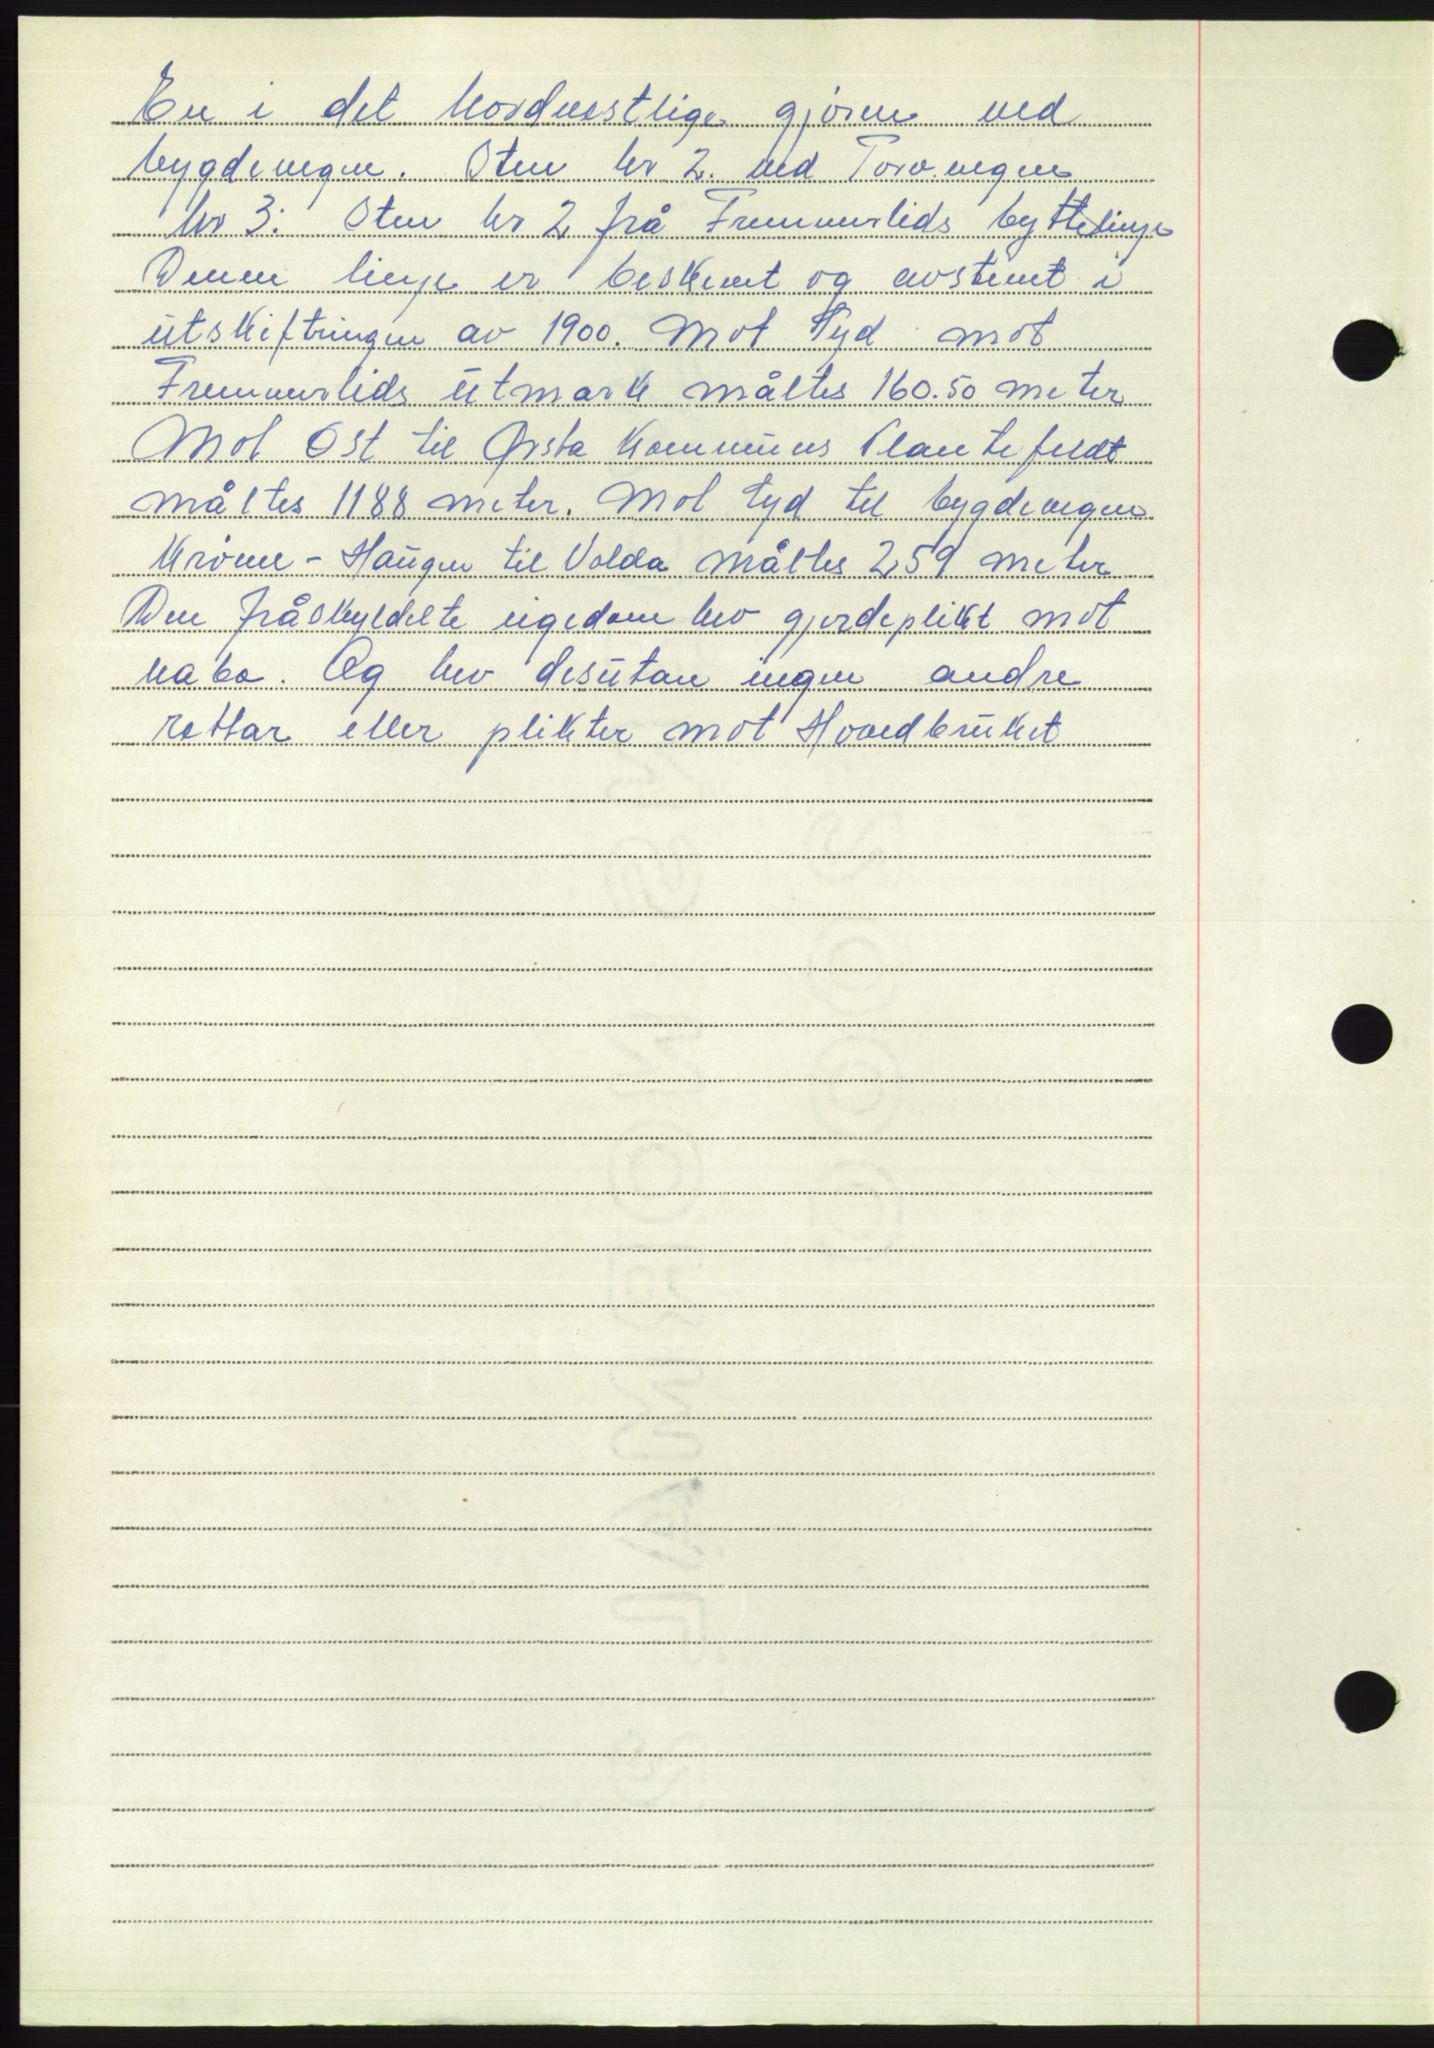 En i det Nordvestlige gjörne ved
bygdevegen. Sten Nr 2. ved Torvvegen
Nr 3. Sten Nr 2 frå Fremmerlids byttelinje
Denne linje er beskrevet og avstenet i
utskiftningen av 1900. Mot Syd mot
Fremmerlids utmark måltes 160.50 meter
Mot Ost til Ørsta Kommunes Plantefeldt
måltes 1188 meter. Mot Syd til bygdevegen
Krövne - Haugen til Volda måltes 259 meter
Den fråskyldelte eigedom hev gjerdeplikt mot
nabo. Og hev desutan ingen andre
rettar eller plikter mot Hovedbruket